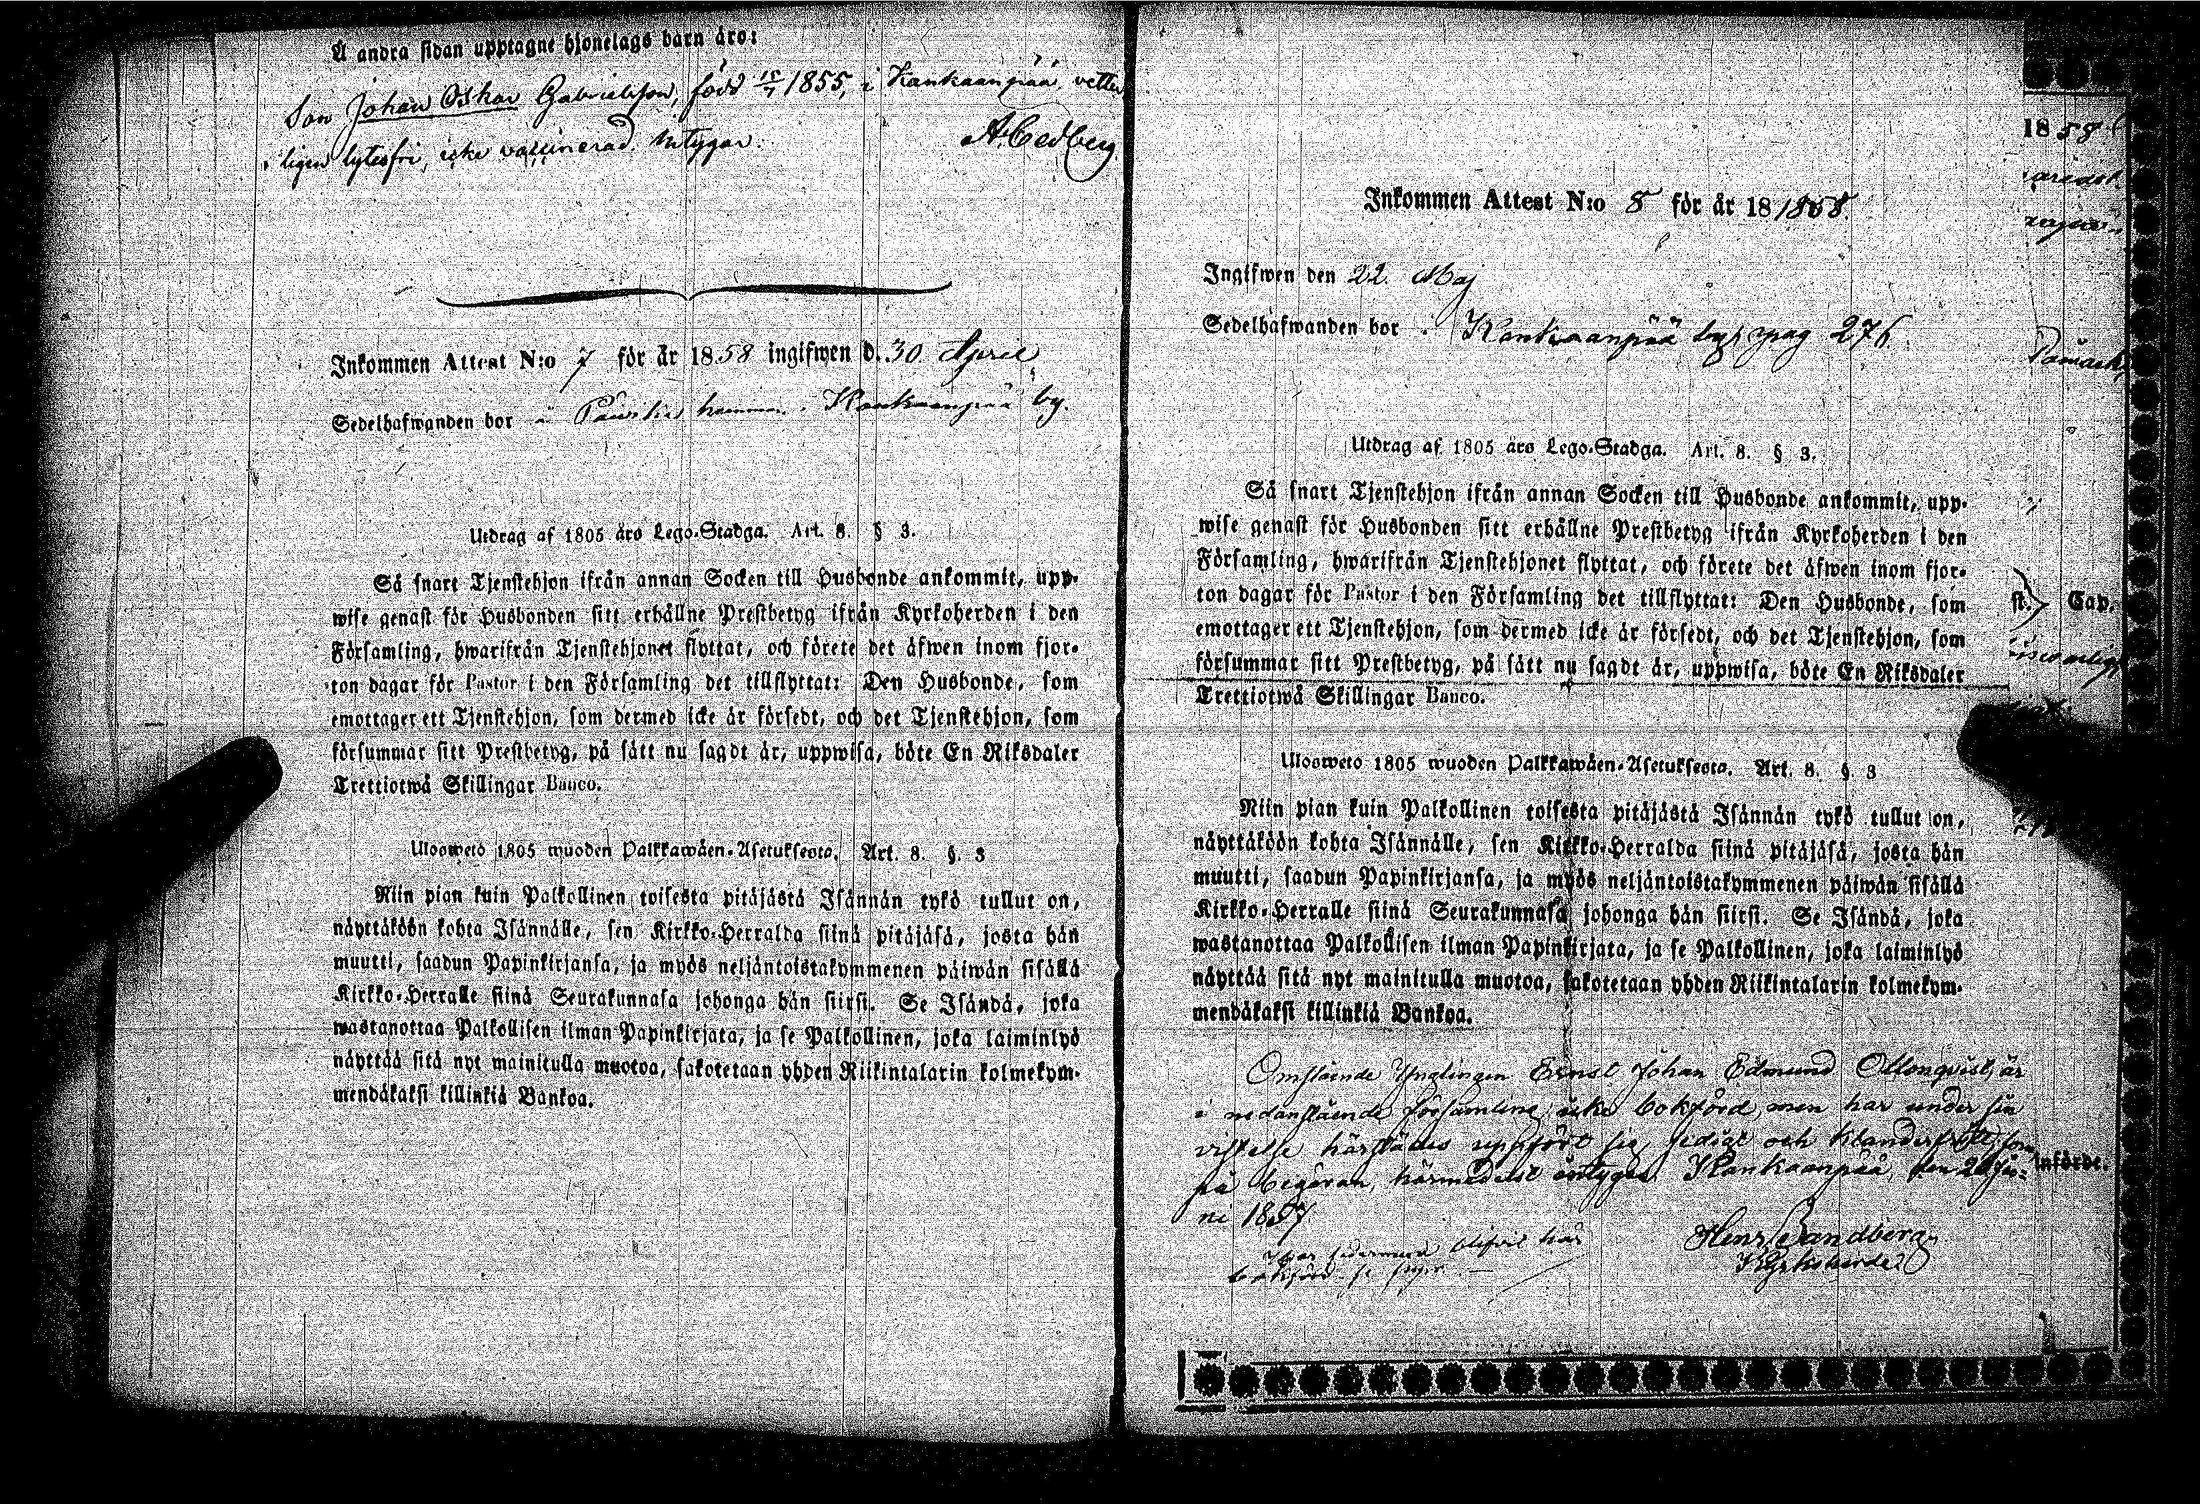 Å andra sidan upptagne hjonelags barn äro:
Son Johan Oskar Gabrielsson, född 15/7 1855, i Kankaanpää, vetter
ligen lytesfri, icke vaccinerad. Intygar.
A. Cedberg
Inkommen Attest N:o 7 för år 1858 ingifwen d. 30 April
Sedelhafwanden bor Kankaanpää by.
Utdrag af 1805 års Lego-Stadga. Art. 8. § 3.
Så snart Tjenstehjon ifrån annan Socken till Husbonde ankommit, upp-
wise genast för Husbonden sitt erhållne Prestbetyg ifrån Kyrkoherden i den
Församling, hwarifrån Tjenstehjonet flyttat, och förete det äfwen inom fjor-
ton dagar för Pastor i den Församling det tillflyttat: Den Husbonde, som
emottager ett Tjenstehjon, som dermed icke är försedt, och det Tjenstehjon, som
försummar sitt Prestbetyg, på sätt nu sagdt är, uppwisa, böte En Riksdaler
Trettiotwå Skillingar Banco.
Uloswetö 1805 wuoden Palkkawäen-Asetuksesta. Art. 8. §. 3
Niin pian kuin Palkollinen toisesta pitäjästä Isännän tykö tullut on,
näyttäköön kohta Isännälle, sen Kirkko-Herralda siinä pitäjäsä, josta hän
muutti, saadun Papinkirjansa, ja myös neljäntoistakymmenen päiwän sisällä
Kirkko-Herralle siinä Seurakunnasa johonga hän siirsi. Se Isändä, joka
wastanottaa Palkollisen ilman Papinkirjata, ja se Palkollinen, joka laiminlyö
näyttää sitä nyt mainitulla muotoa, sakotetaan yhden Riikintalarin kolmekym-
mendäkaksi killinkiä Bankoa.
Inkommen Attest N:o 8 för år 18 1858
Ingifwen den 22 Maj
Sedelhafwanden bor Kankaanpää by, pag 276
Utdrag af 1805 års Lego-Stadga. Art. 8. § 3.
Så snart Tjenstehjon ifrån annan Socken till Husbonde ankommit, upp-
wise genast för Husbonden sitt erhållne Prestbetyg ifrån Kyrkoherden i den
Församling, hwarifrån Tjenstehjonet flyttat, och förete det äfwen inom fjor-
ton dagar för Pastor i den Församling det tillflyttat: Den Husbonde, som
emottager ett Tjenstehjon, som dermed icke är försedt, och det Tjenstehjon, som
försummar sitt Prestbetyg, på sätt nu sagdt är, uppwisa, böte En Riksdaler
Trettiotwå Skillingar Banco.
Uloswetö 1805 wuoden Palkkawäen-Asetuksesta. Art. 8. §. 3
Niin pian kuin Palkollinen toisesta pitäjästä Isännän tykö tullut on,
näyttäköön kohta Isännälle, sen Kirkko-Herralda siinä pitäjäsä, josta hän
muutti, saadun Papinkirjansa, ja myös neljäntoistakymmenen päiwän sisällä
Kirkko-Herralle siinä Seurakunnasa johonga hän siirsi. Se Isändä, joka
wastanottaa Palkollisen ilman Papinkirjata, ja se Palkollinen, joka laiminlyö
näyttää sitä nyt mainitulla muotoa, sakotetaan yhden Riikintalarin kolmekym-
mendäkaksi killinkiä Bankoa.
Omstående Ynglingen Ernst Johan Edmund Ollonqvist, är
i nedanstående församling icke bokförd, men har under sin
vistelse härstädes uppfört sig sedigt och klanderfritt, som
på begäran, härmedelst intygas. Kankaanpää, den 26 Ju-
ni 1857
Henr. Sandberg
Kyrkoherde
har blifvit här
bokförd
1858
Cap.
införde.